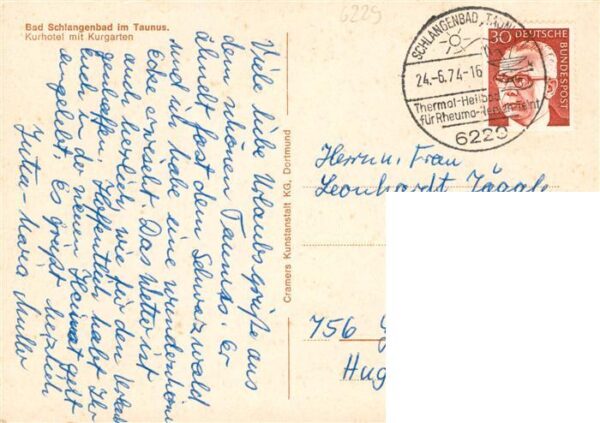 6229
Bad Schlangenbad im Taunus.
Kurhotel mit Kurgarten
Viele liebe Urlaubsgrüße aus
dem schönen Taunus. Er
ähnelt fast dem Schwarzwald
und ich habe eine wunderschöne
Ecke erwischt. Das Wetter ist
auch herrlich, wie für den Urlaub
geschaffen. Hoffentlich habt Ihr
Euch in der neuen Heimat gut
eingelebt. Es grüßt herzlich
Jutta-Maria Müller
Cramers Kunstanstalt KG, Dortmund
SCHLANGENBAD, TAUNUS
24.-6.74-16
Thermal-Heilbad
für Rheuma
6229
30
DEUTSCHE
BUNDESPOST
Herrn u. Frau
Leonhardt Jäggle
756
Hug